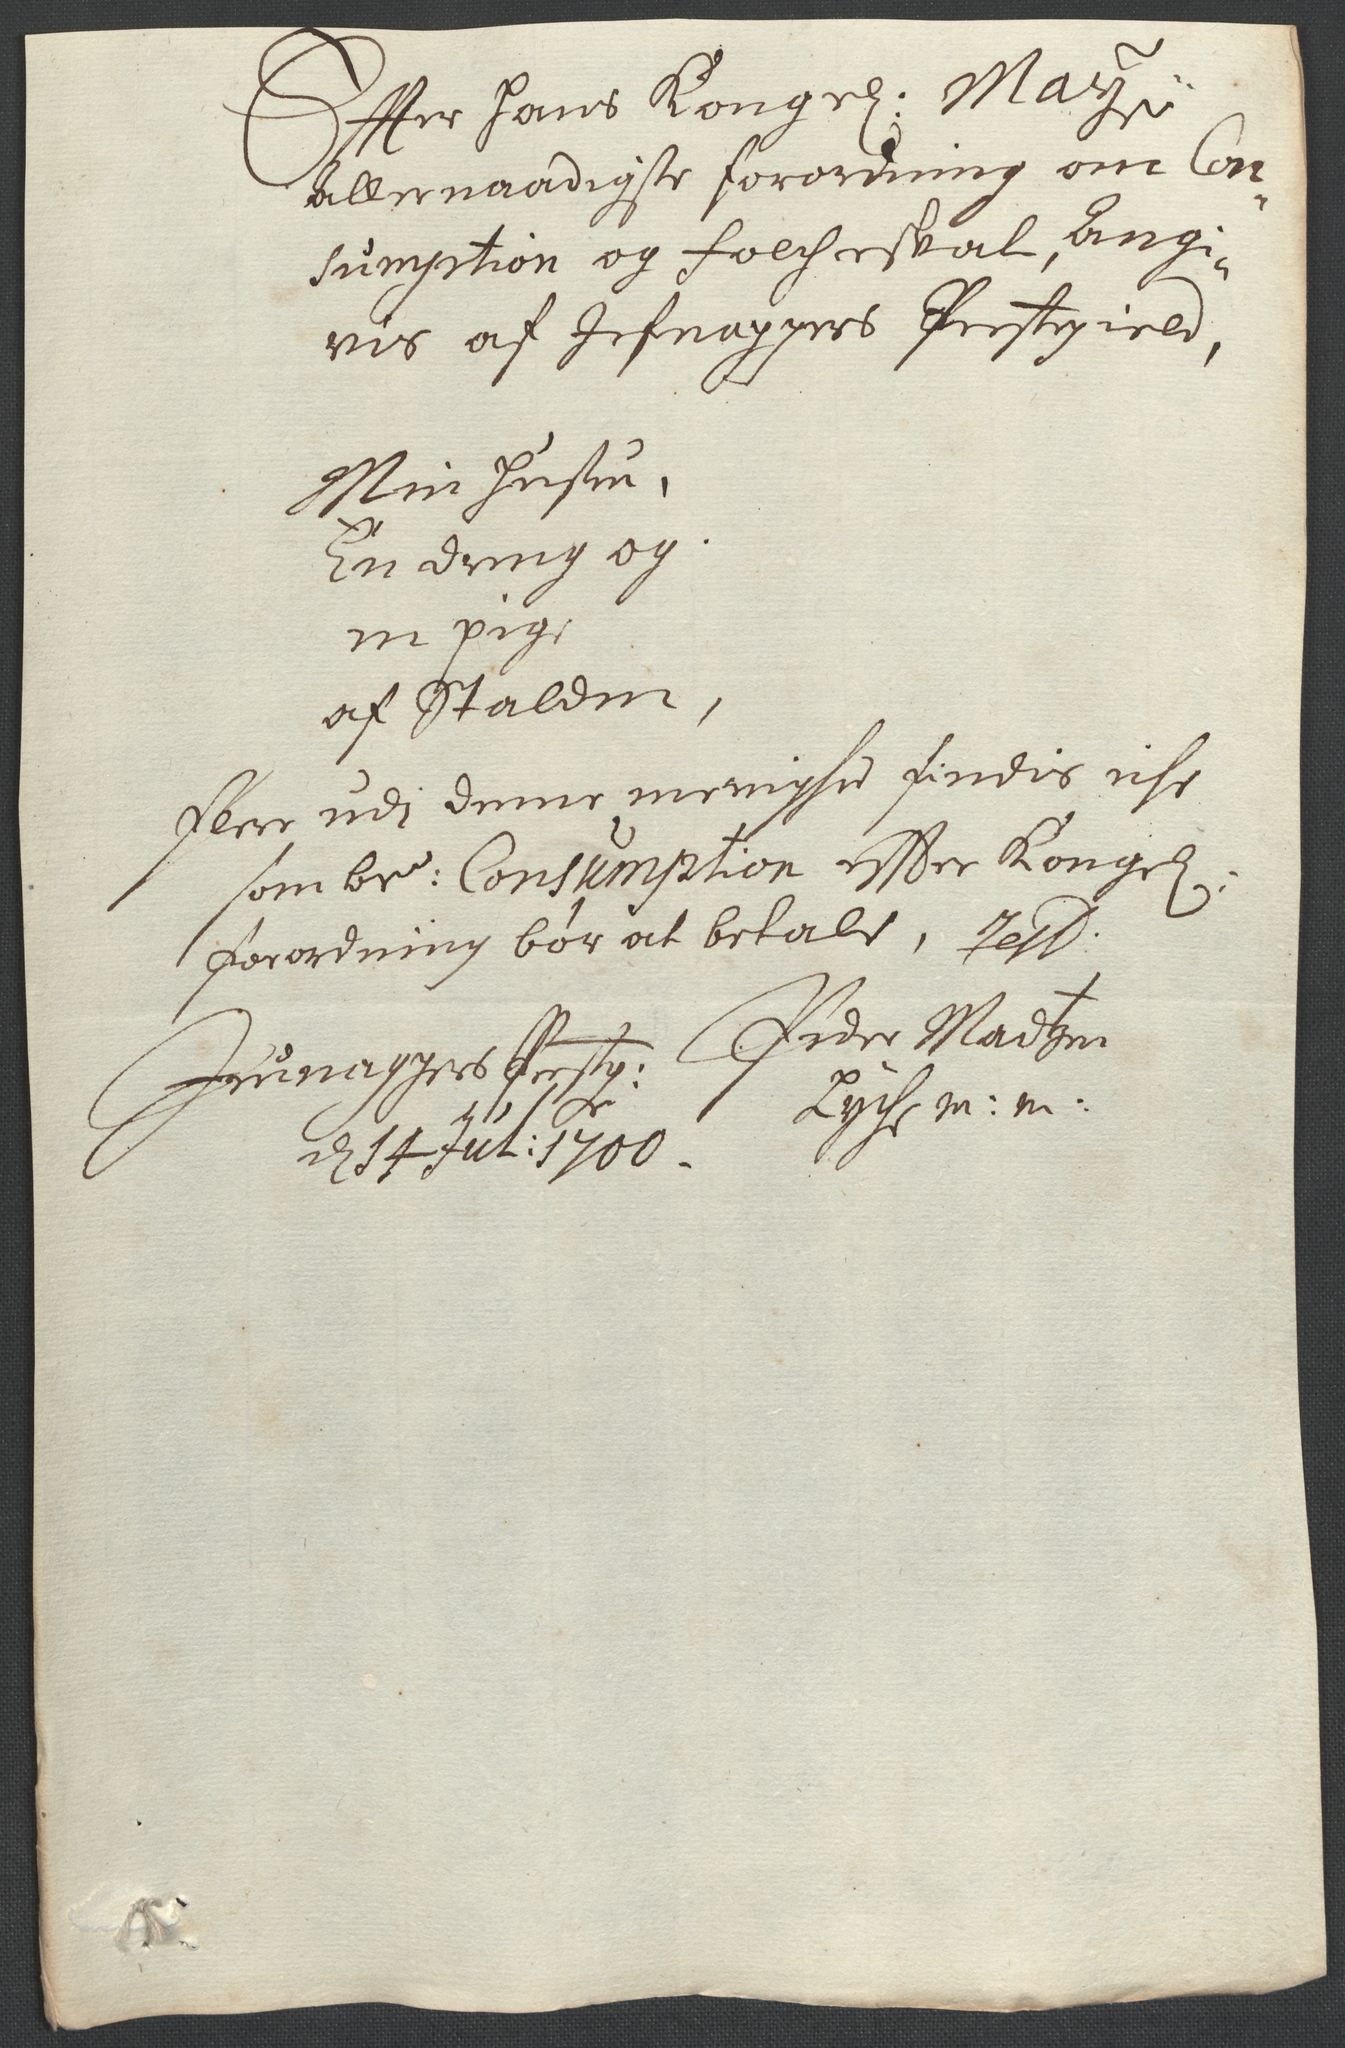 Effter Hans Kongel: May:tz
allernaadigste forordning om Con„
sumption og folcheskat, Angi„
vis af Jefnaggers Prestegield,
Min hustru,
En dreng og
en pige
af Stalden,
flere udi denne menighed findis iche
som be:te Consumption effter Kongel:
forordning bør at betale, Test.
Jeunaggers Prestg:
d 14 Jul: 1700.
Peder Madtzen
Lyche m: m: